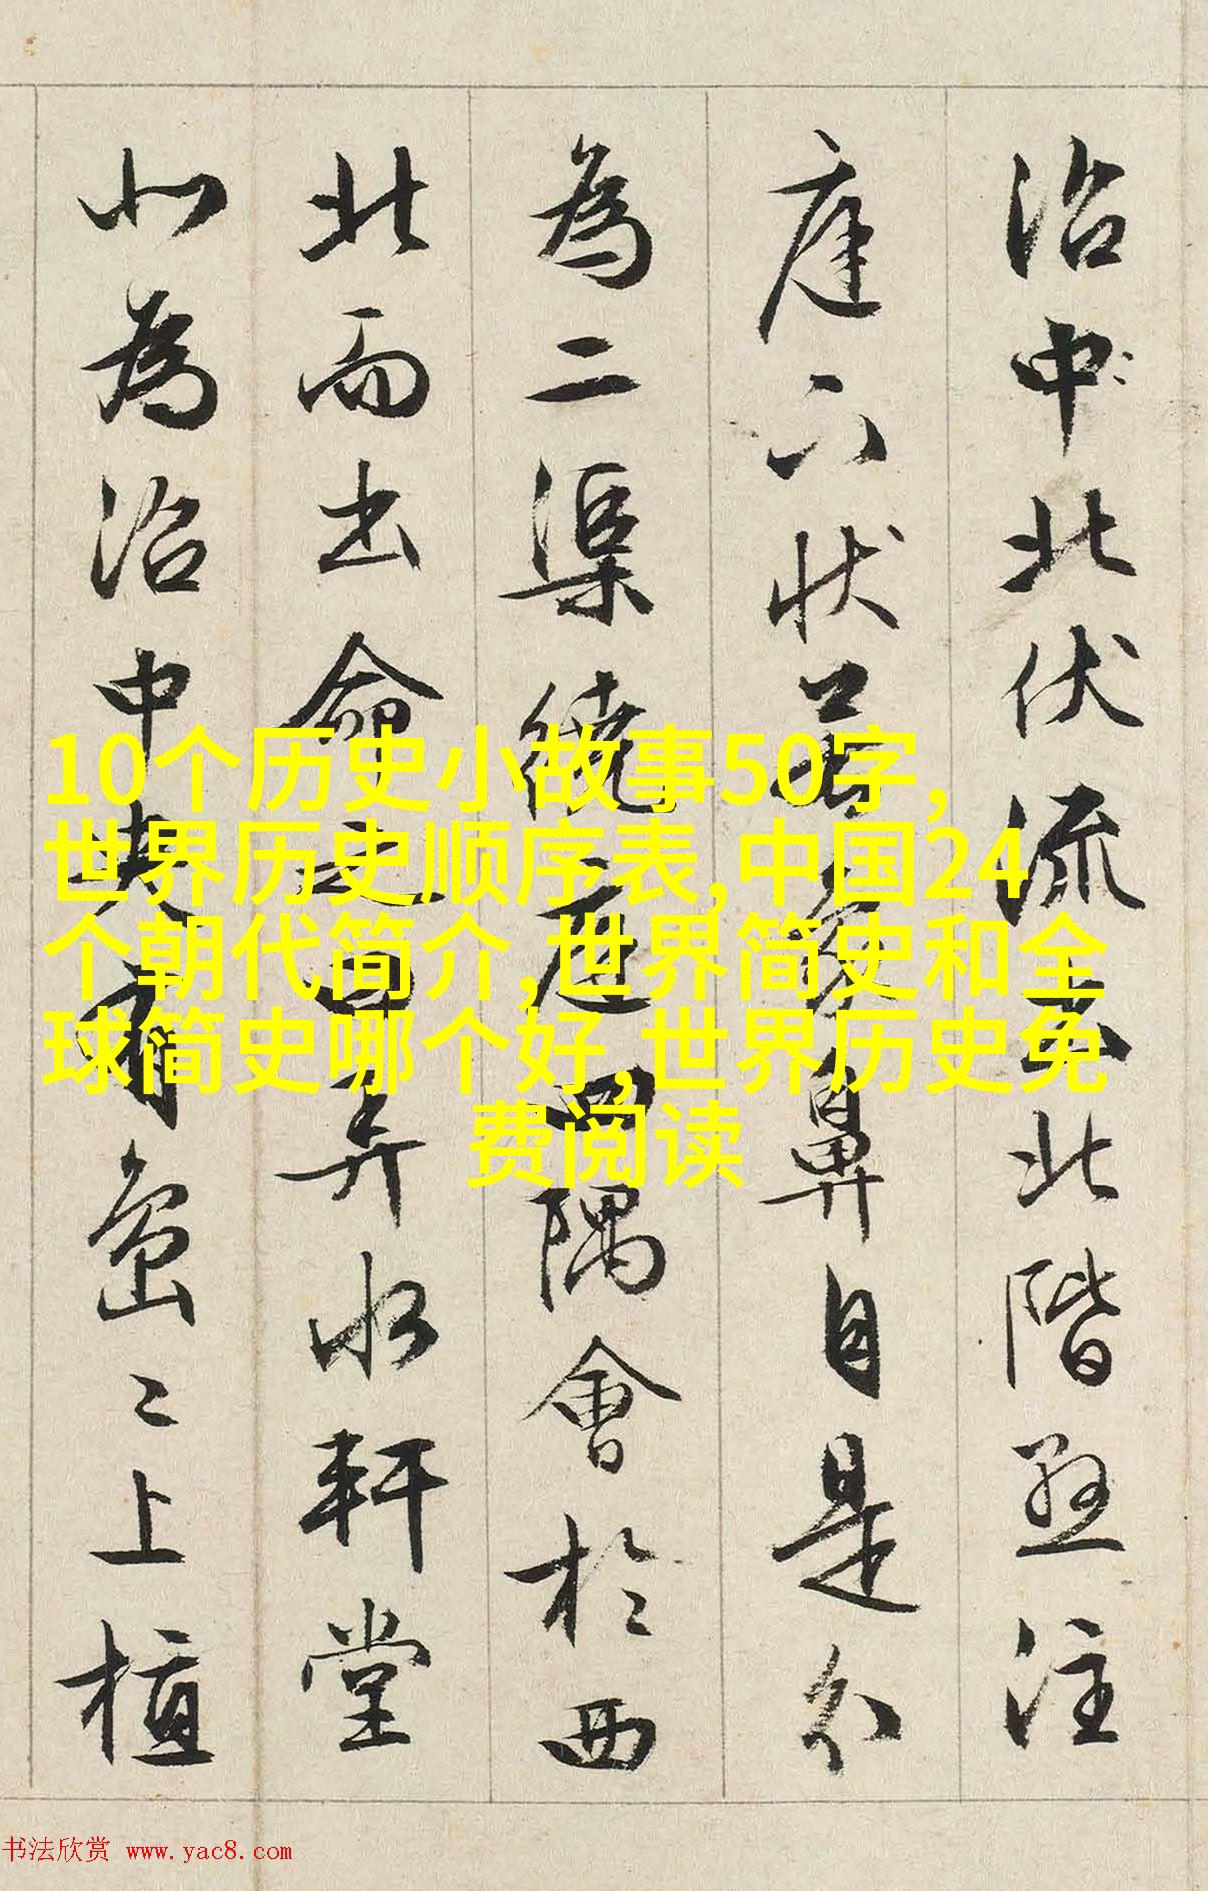 沼中北伏流出北階懸注
庭下狀若象鼻自是分
為二渠繞庭四隅會於西
北而出命之曰弄水軒堂
北為沼中央有島〻上植
10个历史小故事50字,
世界历史顺序表,中国24
个朝代简介,世界简史和全
球简史哪个好,世界历史免
费阅读
书法欣赏 www.yac8.com